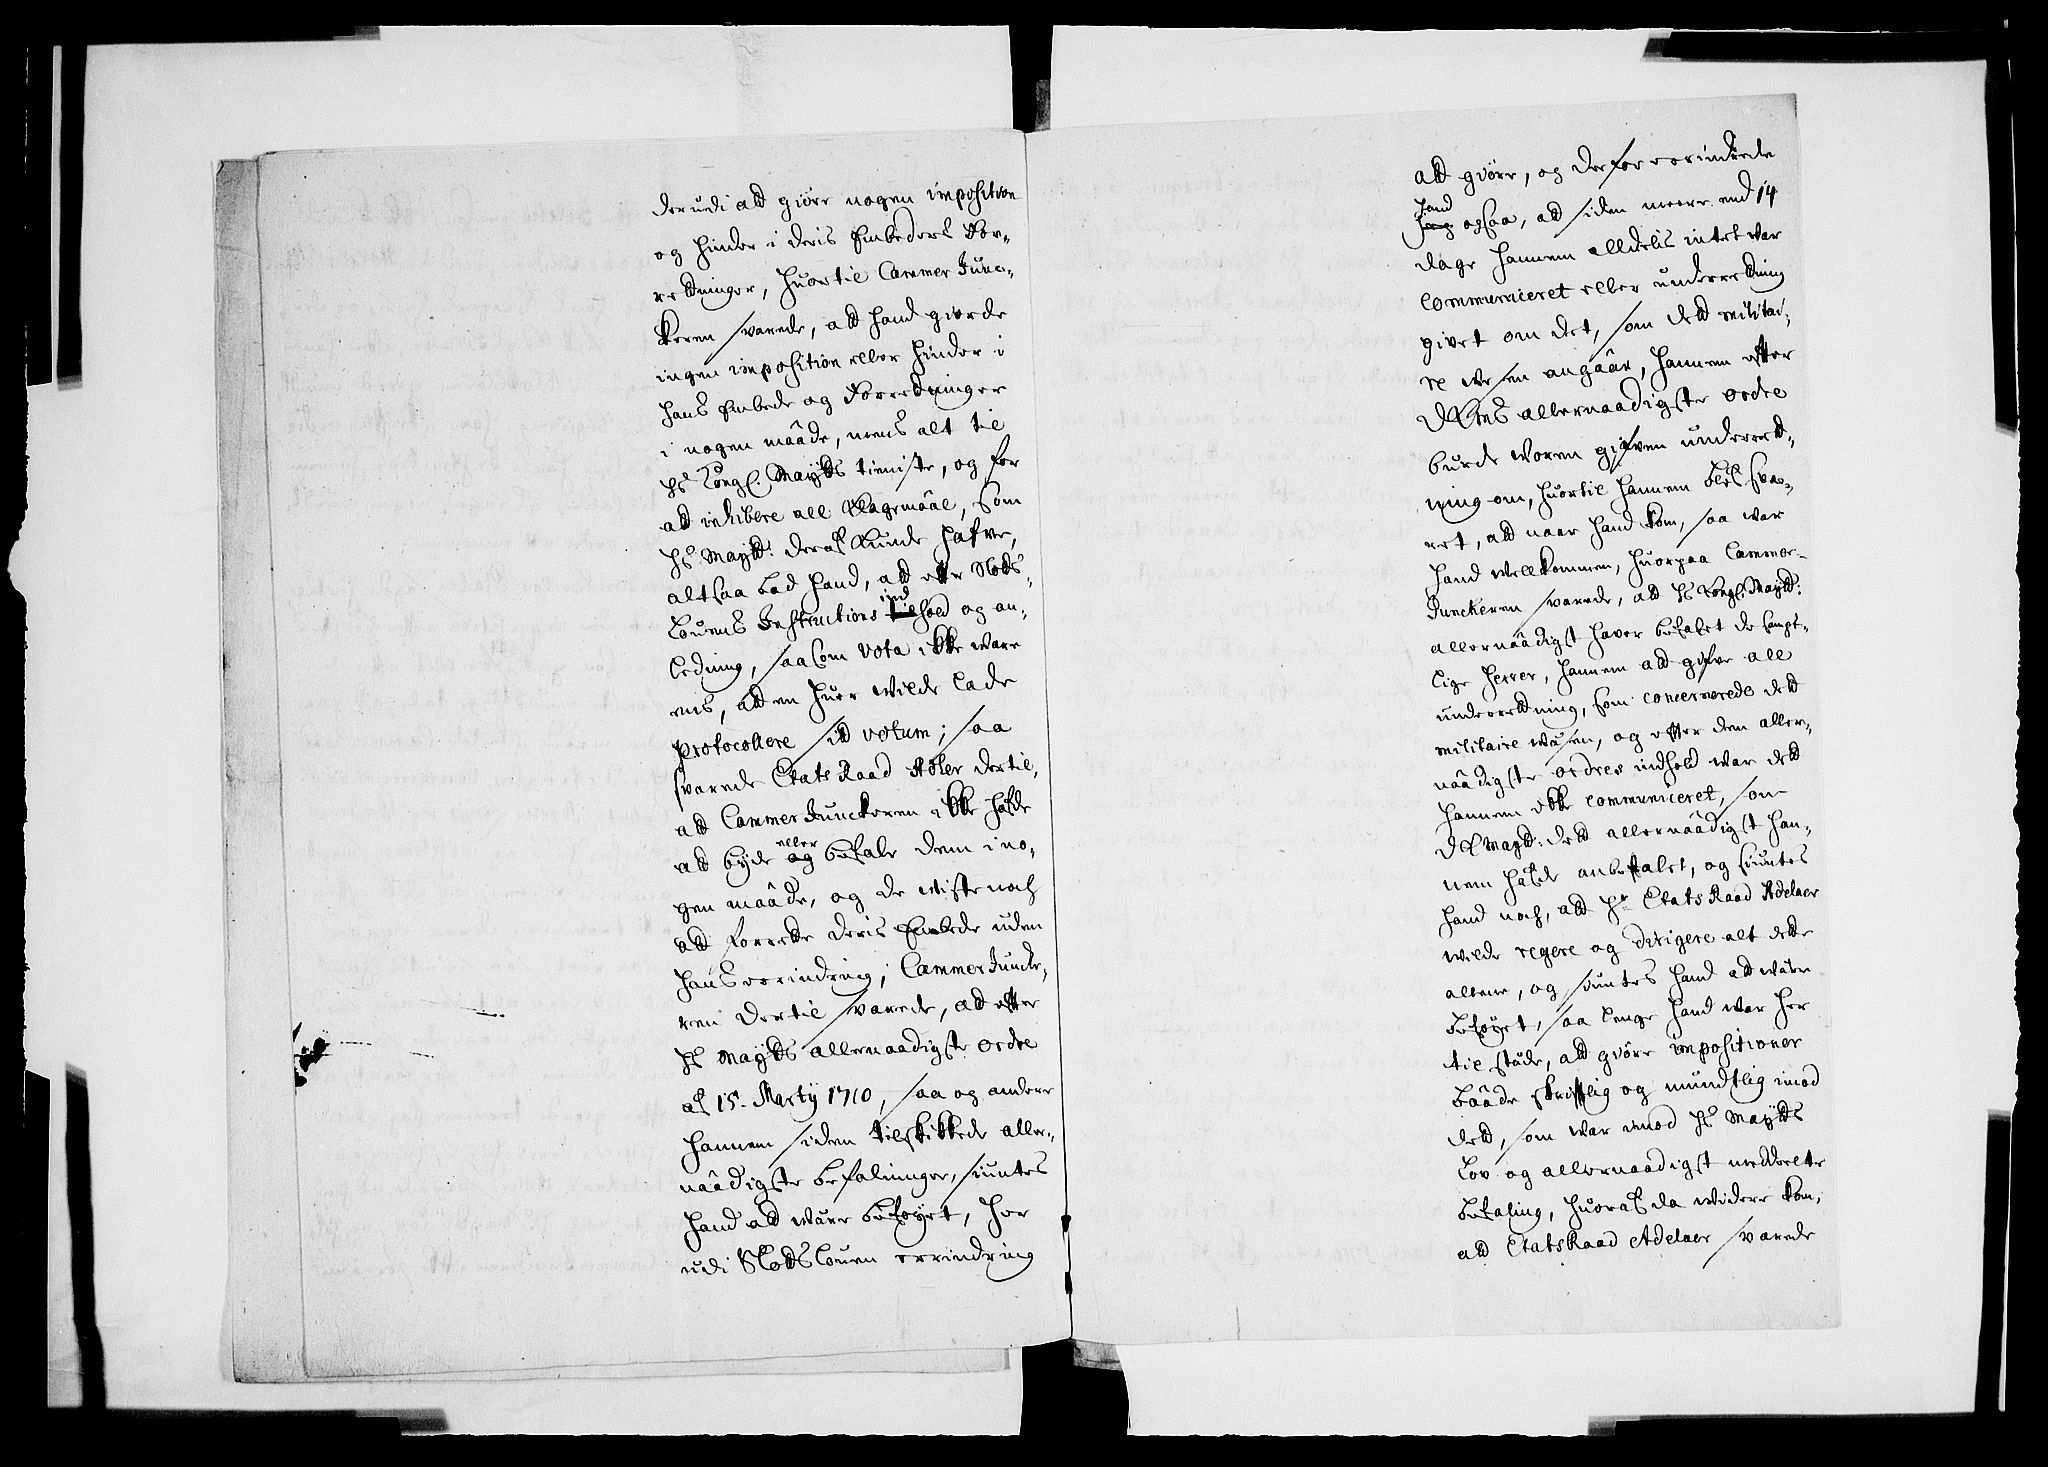 derudi att giöre nogen imposition
og hinder i deris Embeders For-
retninger, huortil Cammer Junc-
keren svarede, att hand giorde
ingen imposition eller hinder i
hans Embede og Forretninger
i nogen maade, mens alt til
Hs Kongl. Mayts tieniste, og for
at inhibere all Klagemaal, som
Hs Mayt: deraf kunde hafve,
altsaa bad hand, att efter Slots-
Lovens Instructions indhold og an-
ledning, saasom vota ikke ware
ens, att en huer wilde lade
protocollere sit votum; saa
svarede Etats Raad Adler dertil,
att Cammer Junckeren ikke hafde
att byde eller befale dem i no-
gen maade, og de wiste noch
att forrette deris Embede uden
hans erindring; Cammer Juncke-
ren dertil svarede, att efter
Hs Mayts allernaadigste ordre
af 15. Marty 1710, saa og andere
hannem siden tilskikkede aller-
naadigste befalinger, siuntes
hand att være beføyet, her
udi Slotsloven erindring
att giöre, og derfor erindrede
hand ogsaa, at siden meere end 14
dage hannem alldelis intet war
communiceret eller underretning
givet om det, som dett militai-
re wesen angaar, hannem efter
dens allernaadigste ordre
burde woren gifven underret-
ning om, huortil hannem blef sva-
ret, att naar hand kom, saa war
hand wellkommen, huorpaa Cammer-
Junckeren svarede, att Hs Kongl. Mayt:
allernaadigst haver befalet de sampt-
lige Herrer, hannem att gifve all
underretning, som concernerede dett
militaire wæsen, og efter den aller-
naadigste ordres indhold war dett
hannem ikke communiceret, som
Mayt: dett allernaadigst han-
nem hafde anbefalet, og siuntes
hand noch, att Hr Etats Raad Adelaer
wilde regere og dirigere alt dette
allene, og siuntes hand att være
beføyet, saa lenge hand war her
til stæde, att giöre impositioner
baade skriftlig og mundtlig imod
dett, som war imod Hs Mayts
Lov og allernaadigst meddeelte
befaling, huoraf da widere kom,
att Etats Raad Adelaer svarede